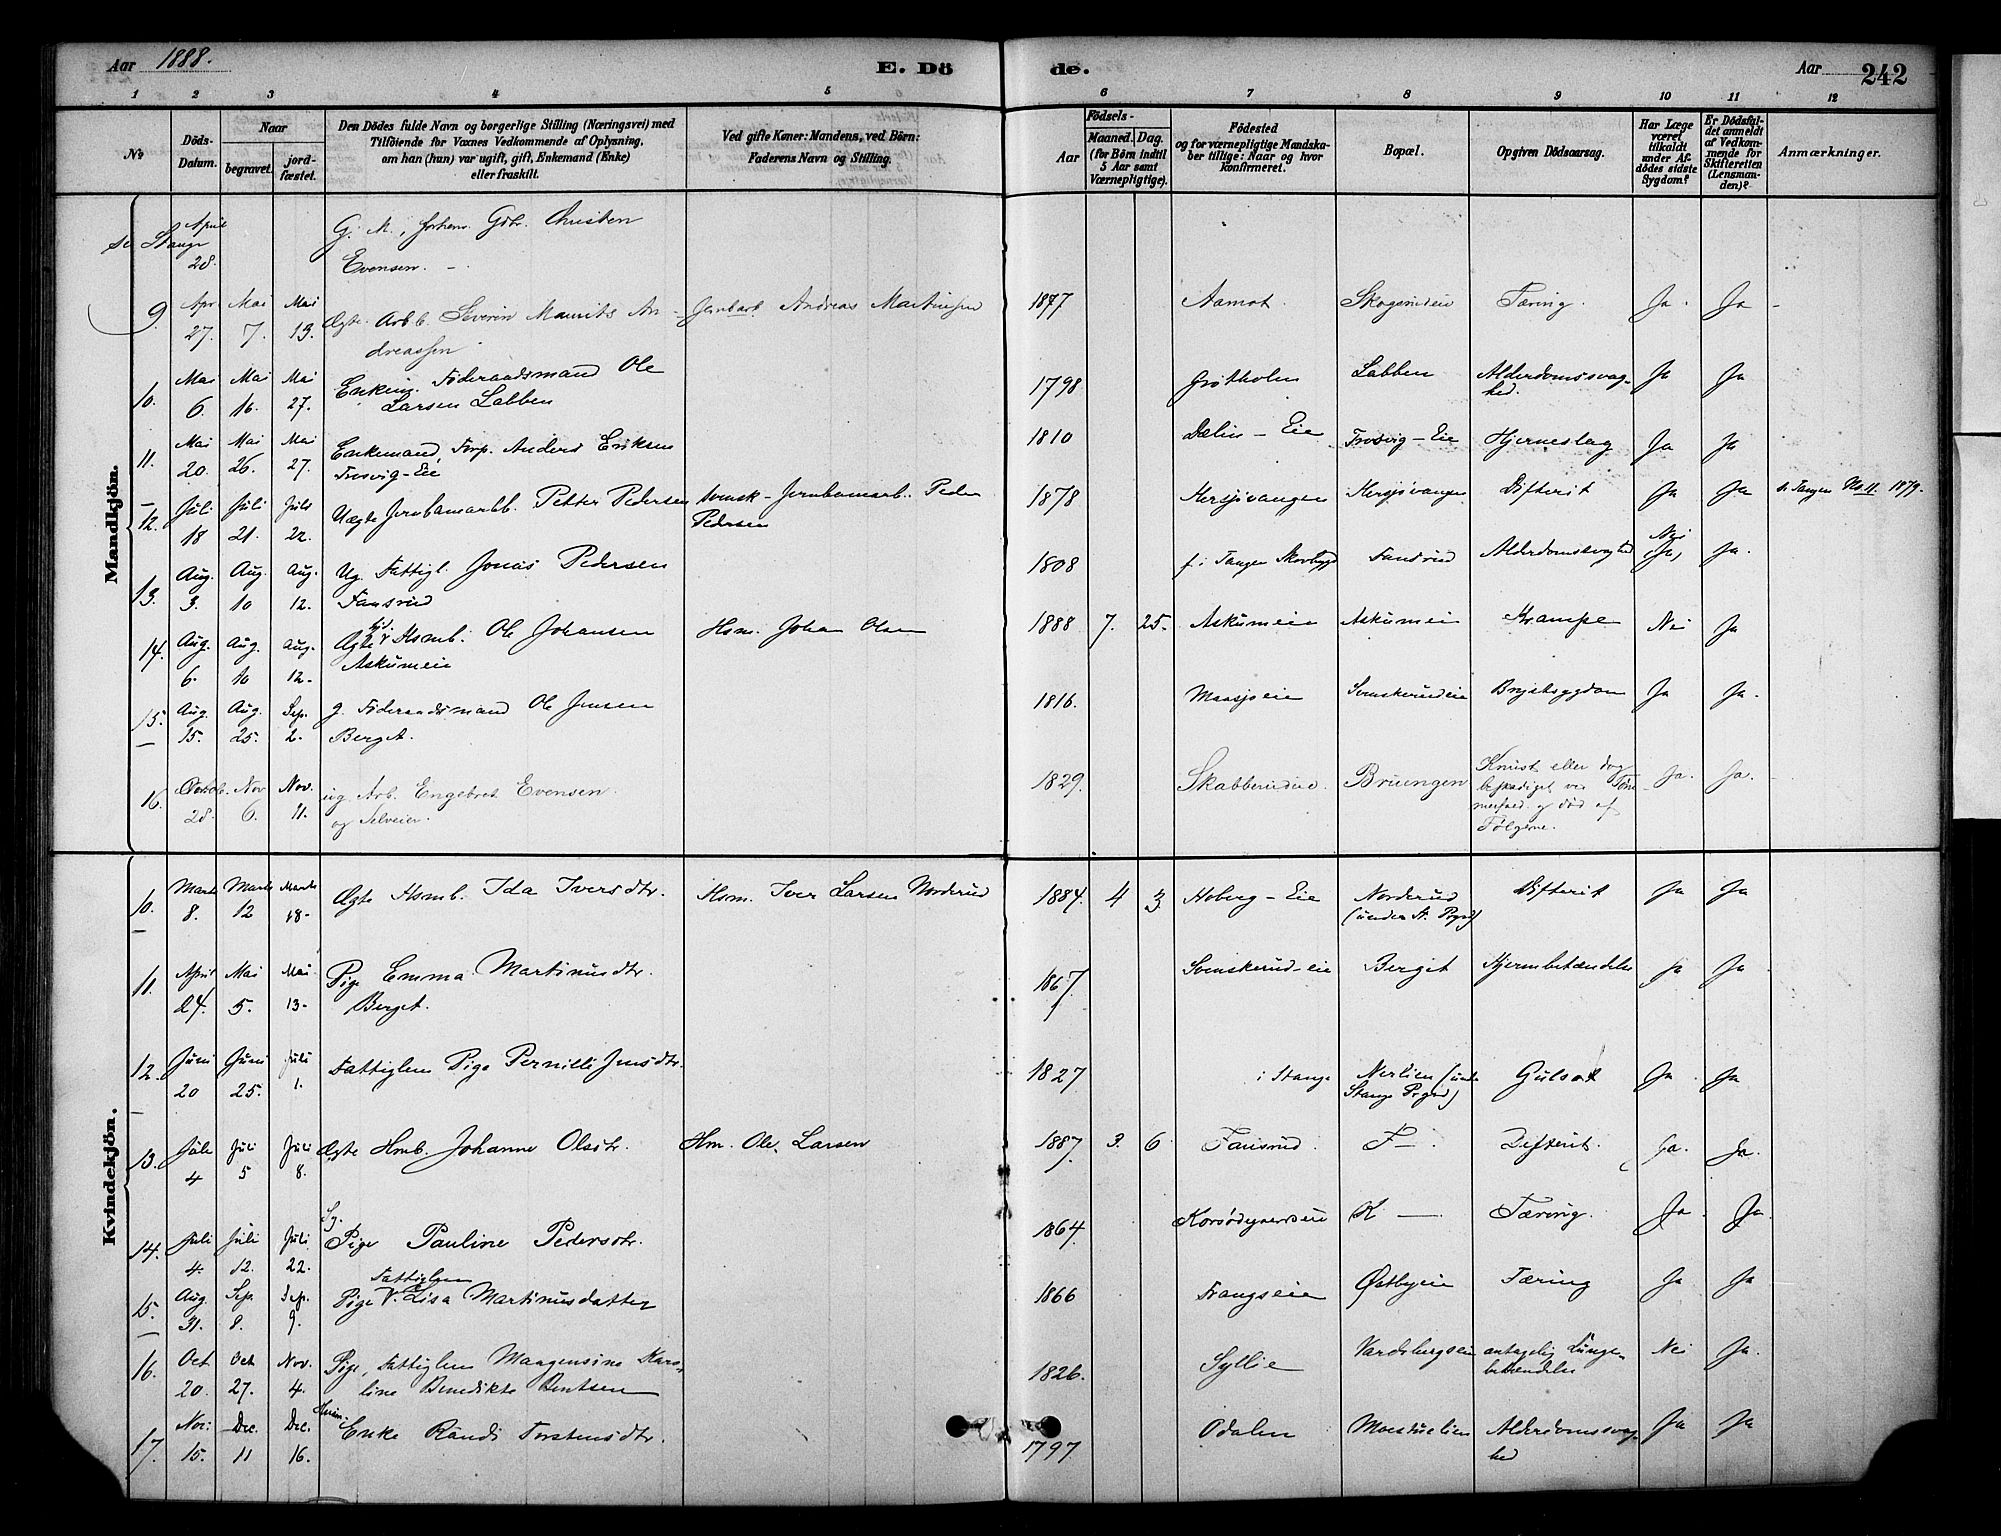 Aar 1888.
E. Dö
de.
Aar 242
1 2 3 4 5 6 7 8 9 10 11 12
No
Döds-Datum.
Naar
begravet.
jordfæstet.
Den Dödes fulde Navn og borgerlige Stilling (Næringsvei) med
Tilföiende for Voxnes Vedkommende af Oplysning,
om han (hun) var ugift, gift, Enkemand (Enke)
eller fraskilt.
Ved gifte Koner: Mandens, ved Börn:
Faderens Navn og Stilling.
Födsels-
Aar
Maaned. Dag.
(for Börn indtil
5 Aar samt
Værnepligtige).
Födested
og for værnepligtige Mandskaber tillige: Naar og hvor
konfirmeret.
Bopæl.
Opgiven Dödsaarsag.
Har Læge
været
tilkaldt
under Afdödes sidste
Sygdom?
Er Dödsfaldet anmeldt
af Vedkommende for
Skifteretten
(Lensmanden)?
Anmærkninger.
Mandkjön.
Stange April 28. G. M., Gbr. Christen
Evensen.
9. Apr 27. Mai 7. Mai 13. Ægte Arbb. Severin Maurits Andreassen Jernbarb Andreas Martinsen 1877 Aamot Skogsrudeie Tæring. Ja. Ja
10. Mai 6. Mai 16. Mai 27. Enkem. Föderaadsmand Ole
Larsen Labben 1798 Grøtholen Labben Alderdomssvaghed. Ja Ja
11. Mai 20. Mai 26. Mai 27. Enkemand, Anders Eriksen
Tresvig-Eie 1810 Dælin-Eie Trosvig-Eie Hjerneslag Ja Ja
12. Juli 18 Juli 21. Juli 22. Uægte Jernbanearbb. Petter Pedersen svensk Jernbanearb. Peder
Pedersen 1878 Difterit Ja Ja s. Tangen No 11 1879.
13. Aug. 3. Aug. 10 Aug. 12. Ug. Fattigl. Jonas Pedersen
Fansrud 1808 f. i Tangen Alderdomssvaghed Nei Ja, Ja.
14. Aug. 6. Aug. 10 Aug. 12. Ægte Hsmb. Ole Johansen
Askumeie Hsm. Johan Olsen 1888 7. 25. Askumeie Askumeie Krampe Nei Ja
15. Aug. 15. Aug. 25. Sep. 2. g. Föderaadsmand Ole Jensen
Berget. 1816. Svenskerudeie Brystsygdom Ja Ja.
16. Octob. 28. Nov 6. Nov. 11. ug Arb. Engebret Evensen.
og Selveier. 1829. Skabberudeie. Bruengen Knust eller dog
beskadiget ved
og død af
Følgerne. Ja. Ja.
Kvindekjön.
10. Marts 8. Marts 12 Marts 18. Ægte Hsmb. Ida Iversdtr. Hsm. Iver Larsen Norderud 1884. 4 3 Hoberg-Eie Norderud
(under St. Prgd) Difterit Ja Ja
11. April 24. Mai 5. Mai 13. Pige Emma Martinusdtr.
Berget. 1867. Svenskerud-eie Berget Hjernebetændelse Ja Ja
12. Juni 20 Juni 25. Juli 1. Fattiglem Pige Pernille Jensdtr. 1827 i Stange Nerlien (under
Stange Prgd) Gulsot Ja Ja
13. Juli 4 Juli 5 Juli 8. Ægte Hmb. Johanne Olsdtr. Hm. Ole Larsen 1887. 3. 6 Fansrud. F—. Difterit. Ja. Ja.
14. Juli 4. Juli 12. Juli 22. Pige Pauline Pedersdtr. 1864 K — Tæring. Ja. Ja.
15. Aug. 31. Sep. 8. Sep. 9. Fattiglem
Pige Lisa Martinusdatter 1866 Frangseie Østbyeie Tæring Ja Ja
16. Oct 20. Oct 27. Nov. 4. Pige, Fattiglem Maagensine Karoline Benedikte Bentsen 1826. Syllie Vardsbergseie antagelig Lungebetændelse Nei Ja.
17. Nov. 15. Dec. 11 Dec. 16. Enke Randi Torstensdtr. 1797 Odalen Alderdomssvaghed Ja Ja